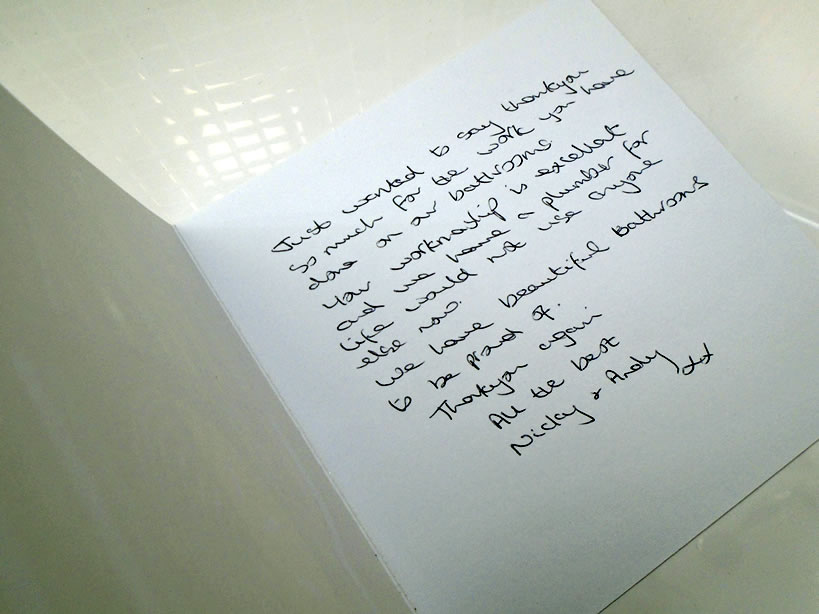 Just wanted to say thankyou
so much for the work you have
done on our bathrooms
Your workmaship is excellent
and we have a plumber for
life would not use anyone
else now.
We have beautiful bathrooms
to be proud of.
Thankyou again
All the best
Nicky & Andy xxx